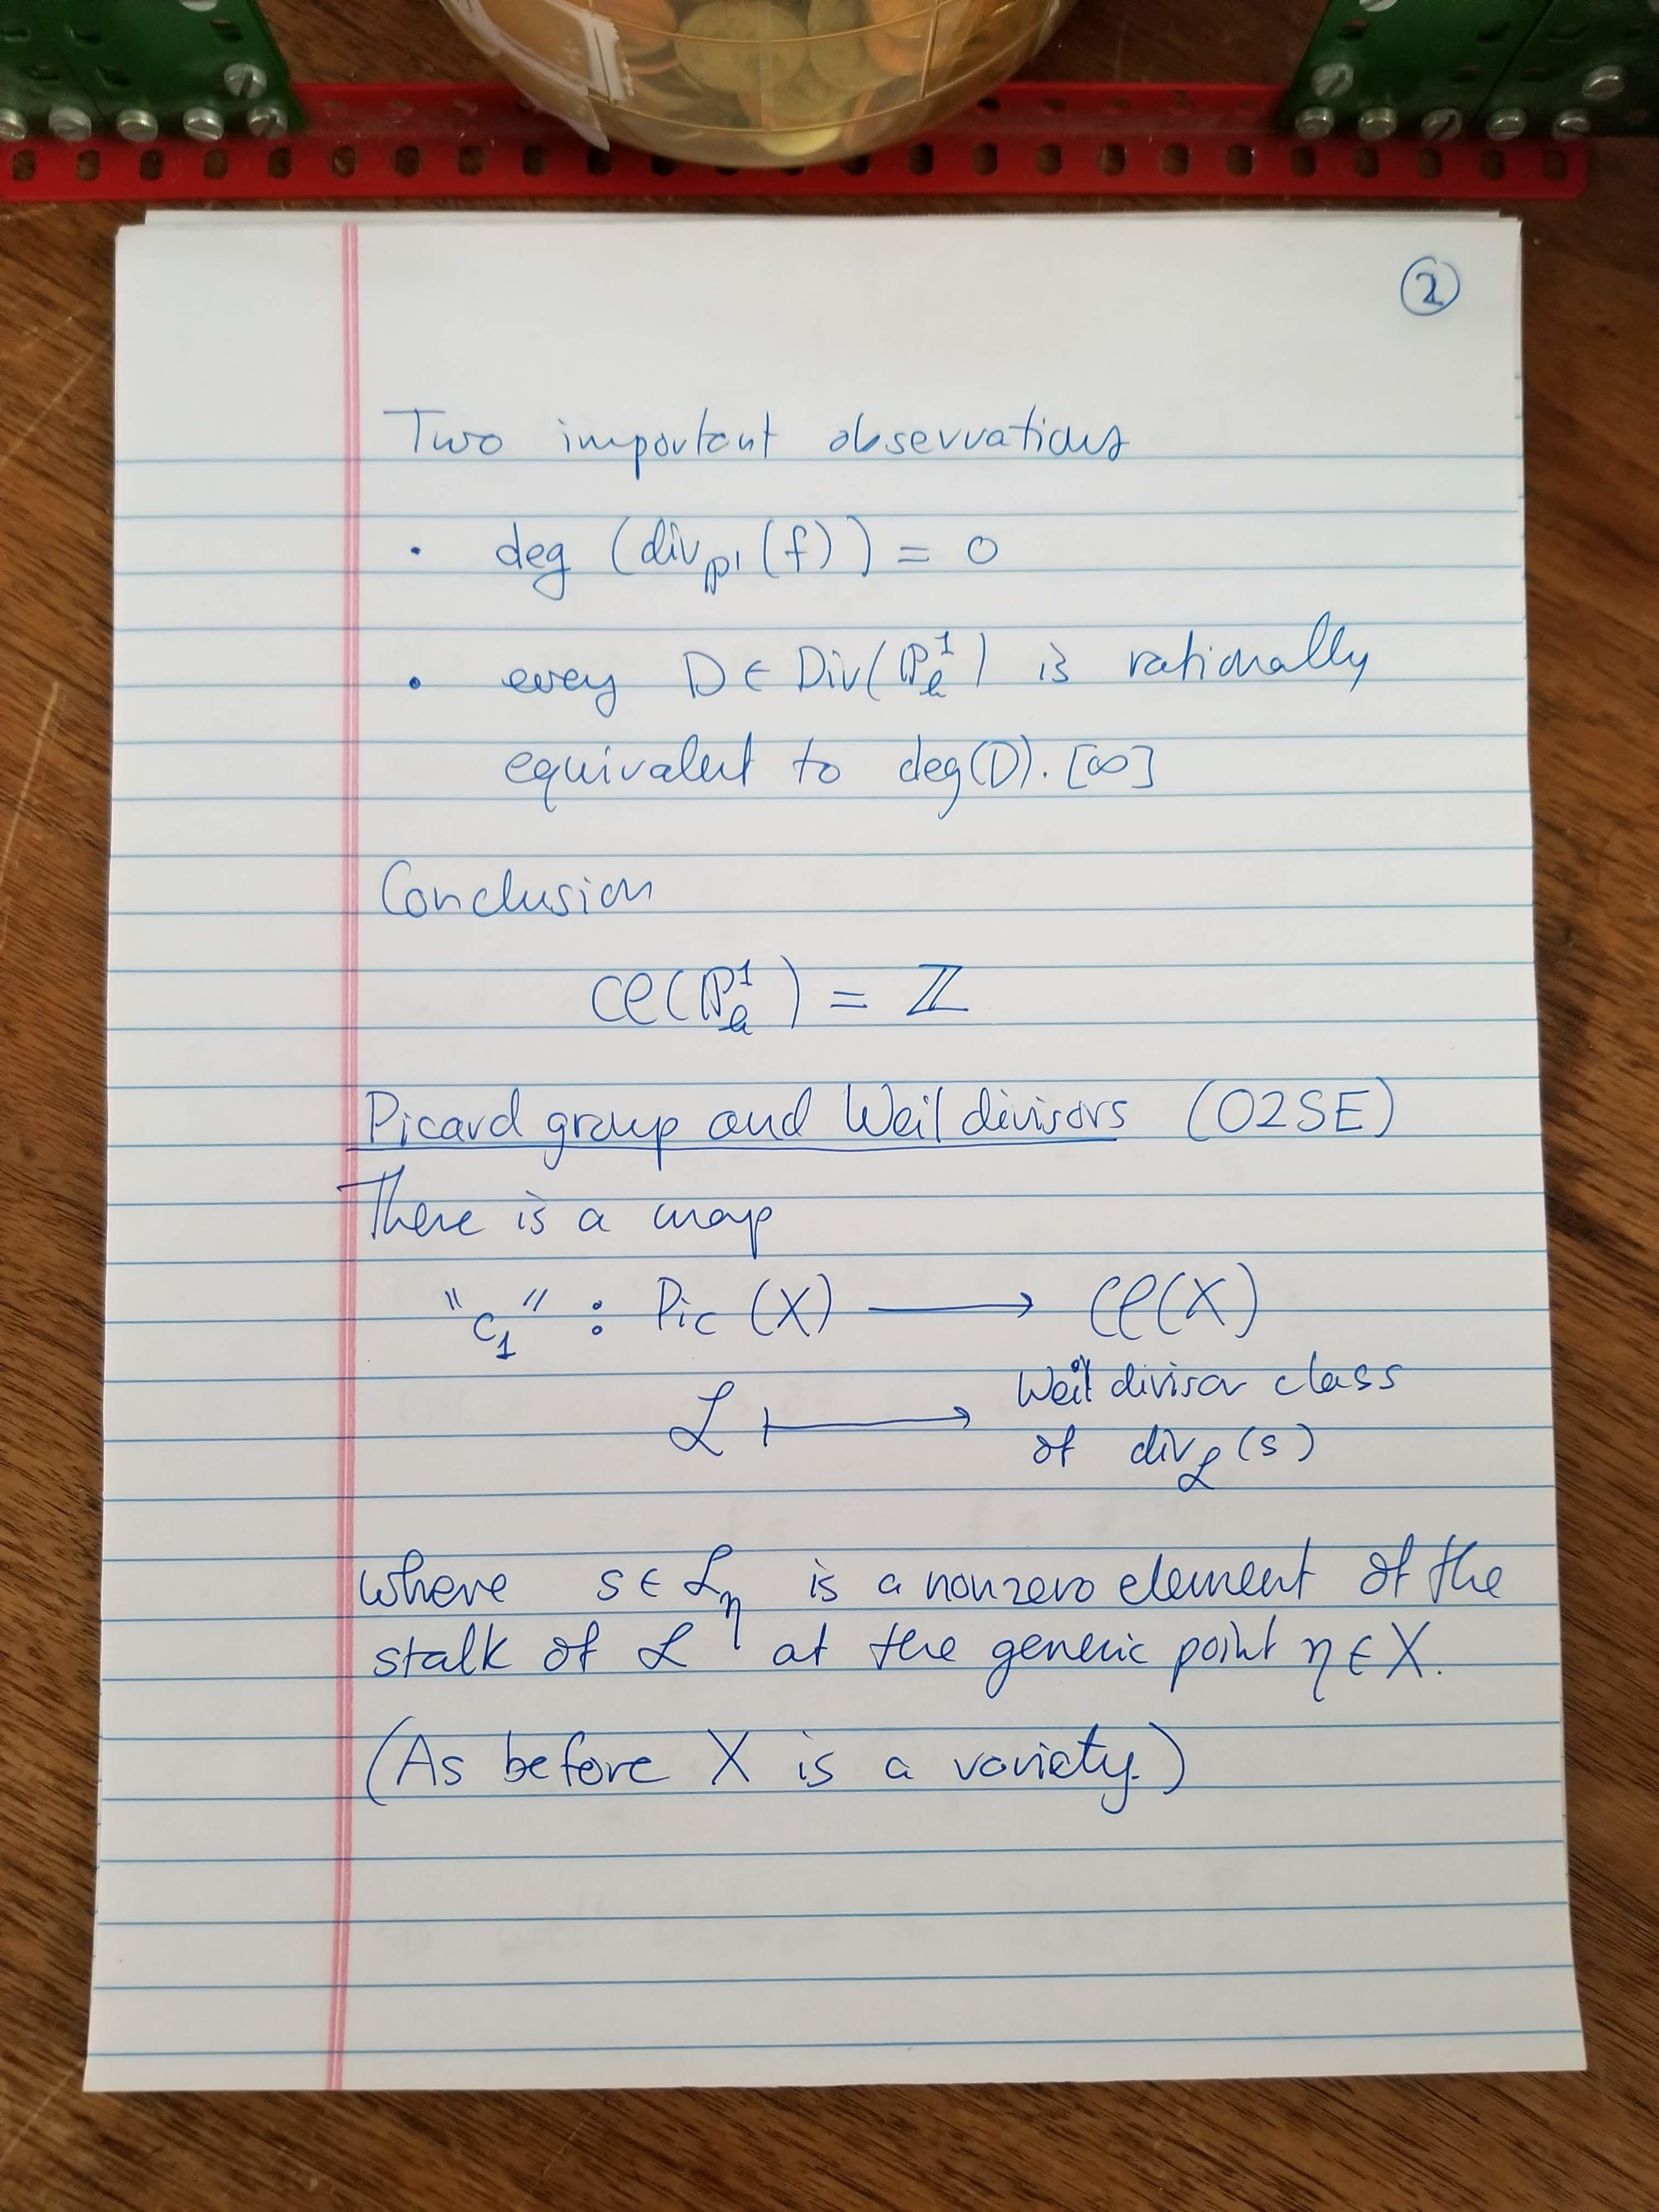 ②
Two important observations
• deg (div_ℙ¹ (f)) = 0
• every D ∈ Div(ℙ¹_k) is rationally
equivalent to deg(D). [∞]
Conclusion
Cl(ℙ¹_k) = ℤ
Picard group and Weil divisors (02SE)
There is a map
"c₁" : Pic (X) ⟶ Cl(X)
ℒ ⟼ Weil divisor class
of div_ℒ (s)
where s ∈ ℒ_η is a nonzero element of the
stalk of ℒ at the generic point η ∈ X.
(As before X is a variety.)